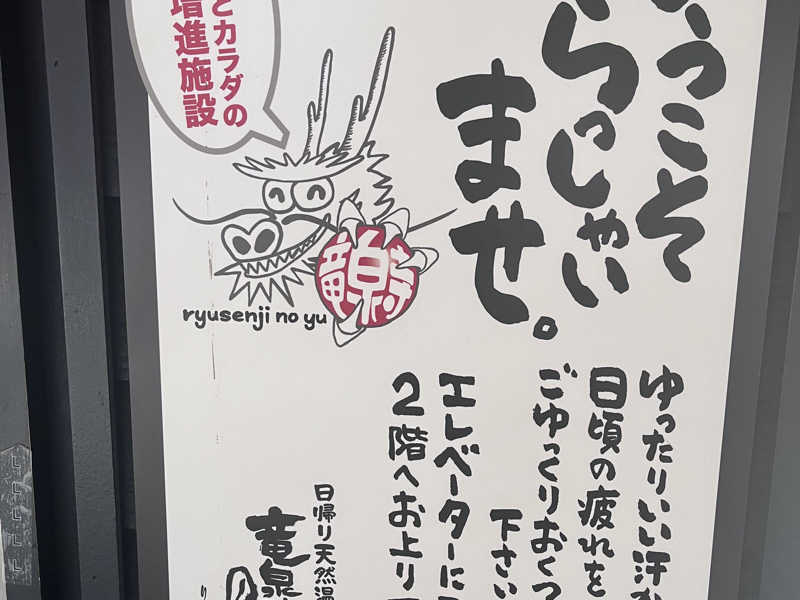 ようこそ
いらっしゃい
ませ。
とカラダの
増進施設
竜泉寺
ryusenji no yu
ゆったりいい汗か
日頃の疲れを
ごゆっくりおくつ
下さい
エレベーターに
2階へお上り
日帰り天然温
竜泉
の